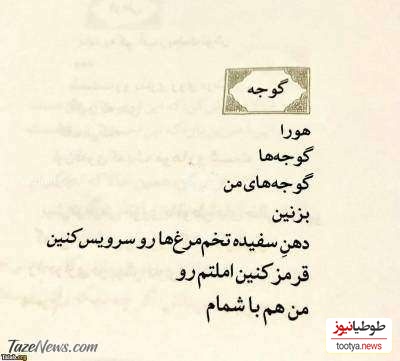 گوجه
هورا
گوجه‌ها
گوجه‌های من
بزنین
دهنِ سفیده تخم‌مرغ‌ها رو سرویس کنین
قرمز کنین املتم رو
من هم با شمام
طوطیانیوز
tootya.news
TazeNews.com